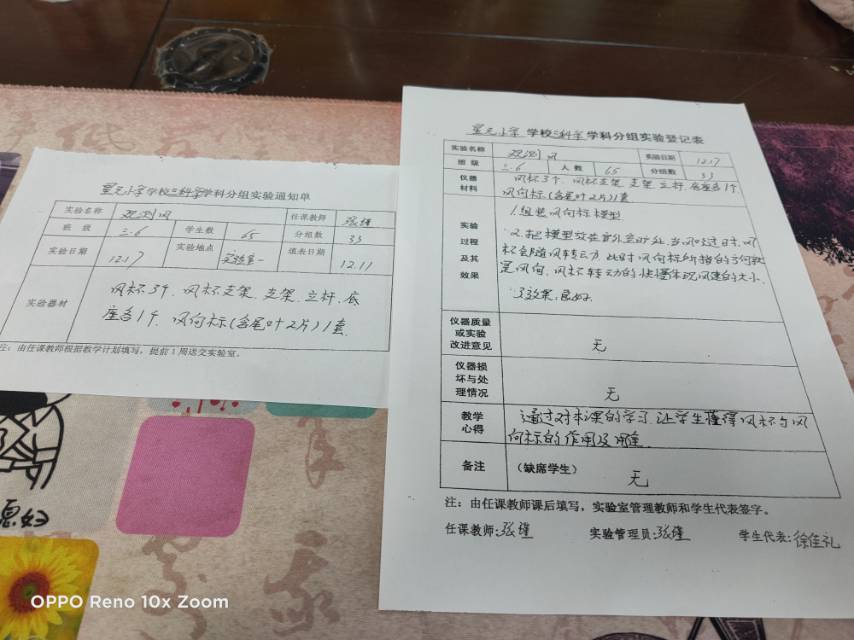 星元小学学校三科学学科分组实验通知单
实验名称 观测风 任课教师 张瑾
班 级 三.6 学生数 65 分组数 33
实验日期 12.17 实验地点 实验室一 填表日期 12.11
实验器材
风杯3个、风杯支架、支架、立杆、底
座各1个、风向标(含尾叶2片)1套.
注:由任课教师根据教学计划填写,提前1周送交实验室。
星元小学 学校三科学 学科分组实验登记表
实验名称 观测风 实验日期 12.17
班 级 三.6 人 数 65 分组数 33
仪器
材料
风杯3个、风杯支架、支架、立杆、底座各1个
风向标(含尾叶2片)1套
实验
过程
及其
效果
1.组装风向标模型
2.把模型放在室外空旷处,当风吹过时,风
杯会随风转动,此时风向标所指的方向就
是风向,风杯转动的快慢体现风速的大小.
3.效果:良好.
仪器质量
或实验
改进意见
无
仪器损
坏与处
理情况
无
教学
心得
通过对本课的学习,让学生懂得风杯与风
向标的作用及用途.
备注 (缺席学生) 无
注:由任课教师课后填写,实验室管理教师和学生代表签字。
任课教师:张瑾 实验管理员:张瑾 学生代表:徐佳礼
媳妇
OPPO Reno 10x Zoom